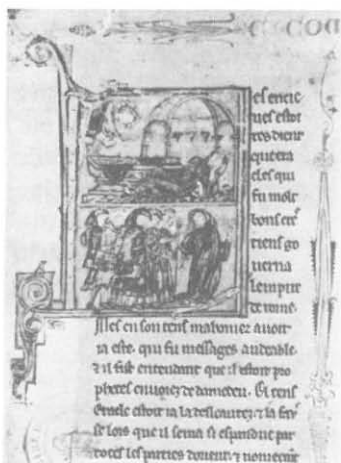 es encie
nes estoi
res dient
que era
cles qui
fu molt
bons cre
tiens go
verna
lempire
de rome.
Mes en son tens mahomez avoit
ia este. qui fu messages audeable.
⁊ il fist entendant que il estoit pro
phetes envoiez de damedeu. El tens
Eracle estoit ia la desloautez ⁊ la fau
se lois que il sema si espandue par
totes les parties dorient ⁊